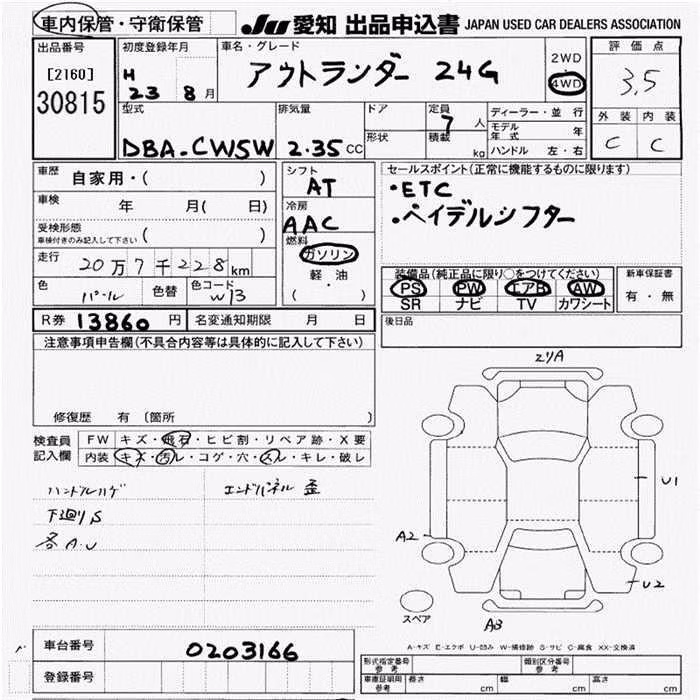 車内保管・守衛保管 JU 愛知 出品申込書 JAPAN USED CAR DEALERS ASSOCIATION
出品番号
[2160]
30815
初度登録年月
H
23 8月
車名・グレード
アウトランダー 24G
2WD
4WD
評価点
3.5
外装 内装
C C
型式
DBA-CW5W
排気量
2.35cc
ドア
形状
定員
7人
積載
kg
ディーラー・並行
モデル年式 年
ハンドル 左・右
車歴
自家用・( )
車検
年 月( 日)
受検形態
車検付きのみ記入して下さい ( )
走行
20万7千228km
色
パール
色替
色コード
W13
シフト
AT
冷房
AAC
燃料
ガソリン
軽・油
( )
セールスポイント(正常に機能するものに限ります)
・ETC
・ペイデルシフター
装備品(純正品に限り○をつけてください)
PS PW エアB AW
SR ナビ TV カワシート
新車保証書
有・無
R券 13860円 名変通知期限 月 日
後日品
注意事項申告欄(不具合内容等は具体的に記入して下さい)
修復歴 有 〔箇所 〕
検査員
記入欄
FW キズ・飛石・ヒビ割・リペア跡・X要
内装 キズ・汚レ・コゲ・穴・スレ・キレ・破レ
ハンドルハゲ
エンドパネル 歪
下廻りS
各A.U
エリA
U1
A2
U2
スペア
A3
A-キズ E-エクボ U-凹み W-補修跡 S-サビ C-腐食 XX-交換済
車台番号 0203166
登録番号
形式指定番号
参考
類別区分番号
参考
車庫証明用
参考
長さ cm 幅 cm 高さ cm